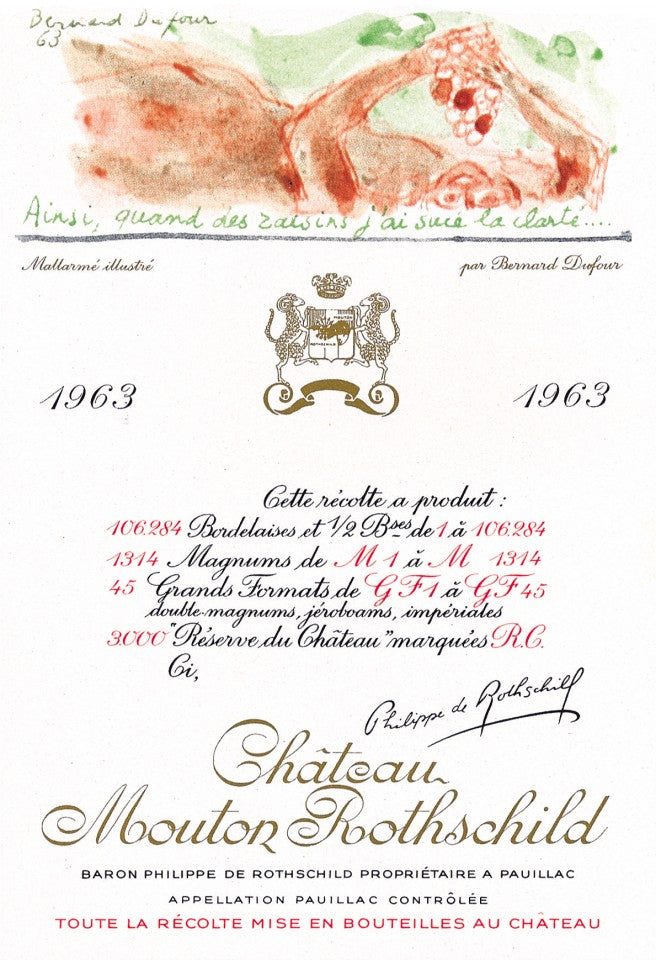 Bernard Dufour
63
Ainsi, quand des raisins j'ai sucé la clarté....
Mallarmé illustré par Bernard Dufour
MOUTON
ROTHSCHILD
1963 1963
Cette récolte a produit :
106.284 Bordelaises et 1/2 Bses de 1 à 106.284
1314 Magnums de M 1 à M 1314
45 Grands Formats de GF 1 à GF 45
double-magnums, jéroboams, impériales
3.000 "Réserve du Château" marquées R.C.
Ci,
Philippe de Rothschild
Château
Mouton Rothschild
BARON PHILIPPE DE ROTHSCHILD PROPRIÉTAIRE A PAUILLAC
APPELLATION PAUILLAC CONTRÔLÉE
TOUTE LA RÉCOLTE MISE EN BOUTEILLES AU CHÂTEAU